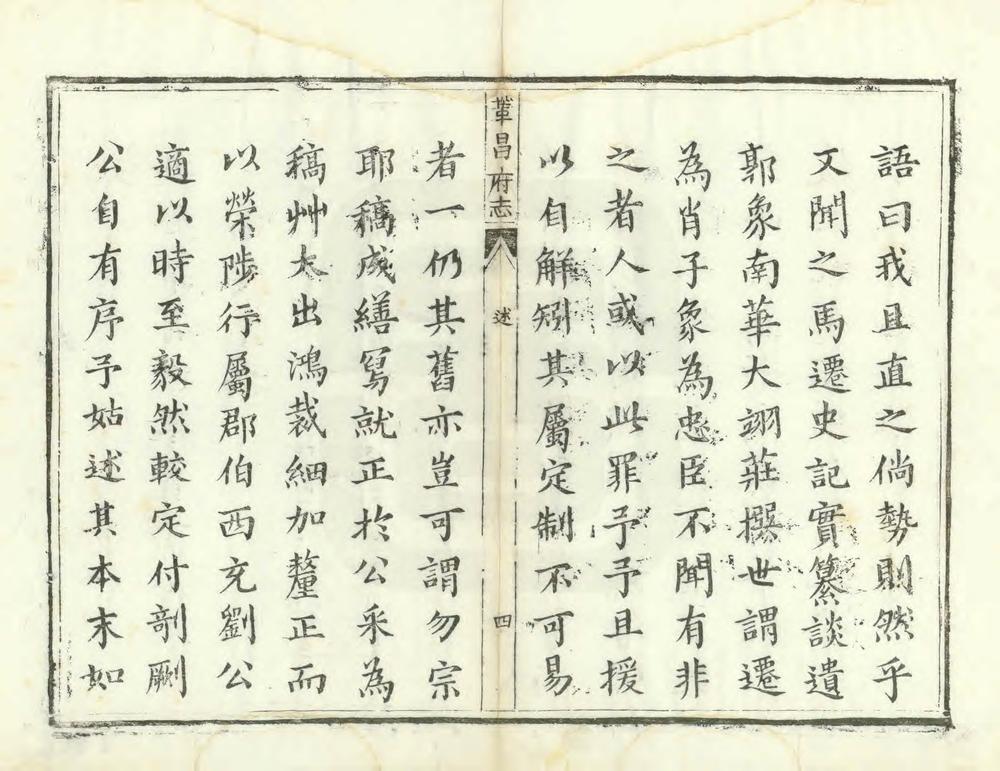 語曰我且直之倘勢則然乎
又聞之馬遷史記實纂談遺
郭象南華大翊莊撰世謂遷
為肖子象為忠臣不聞有非
之者人或以此罪予予且援
以自解矧其屬定制不可易
鞏昌府志 述 四
者一仍其舊亦豈可謂勿宗
耶稿成繕寫就正於公采為
稿艸大出鴻裁細加釐正而
以榮陟行屬郡伯西充劉公
適以時至毅然較定付剞劂
公自有序予姑述其本末如